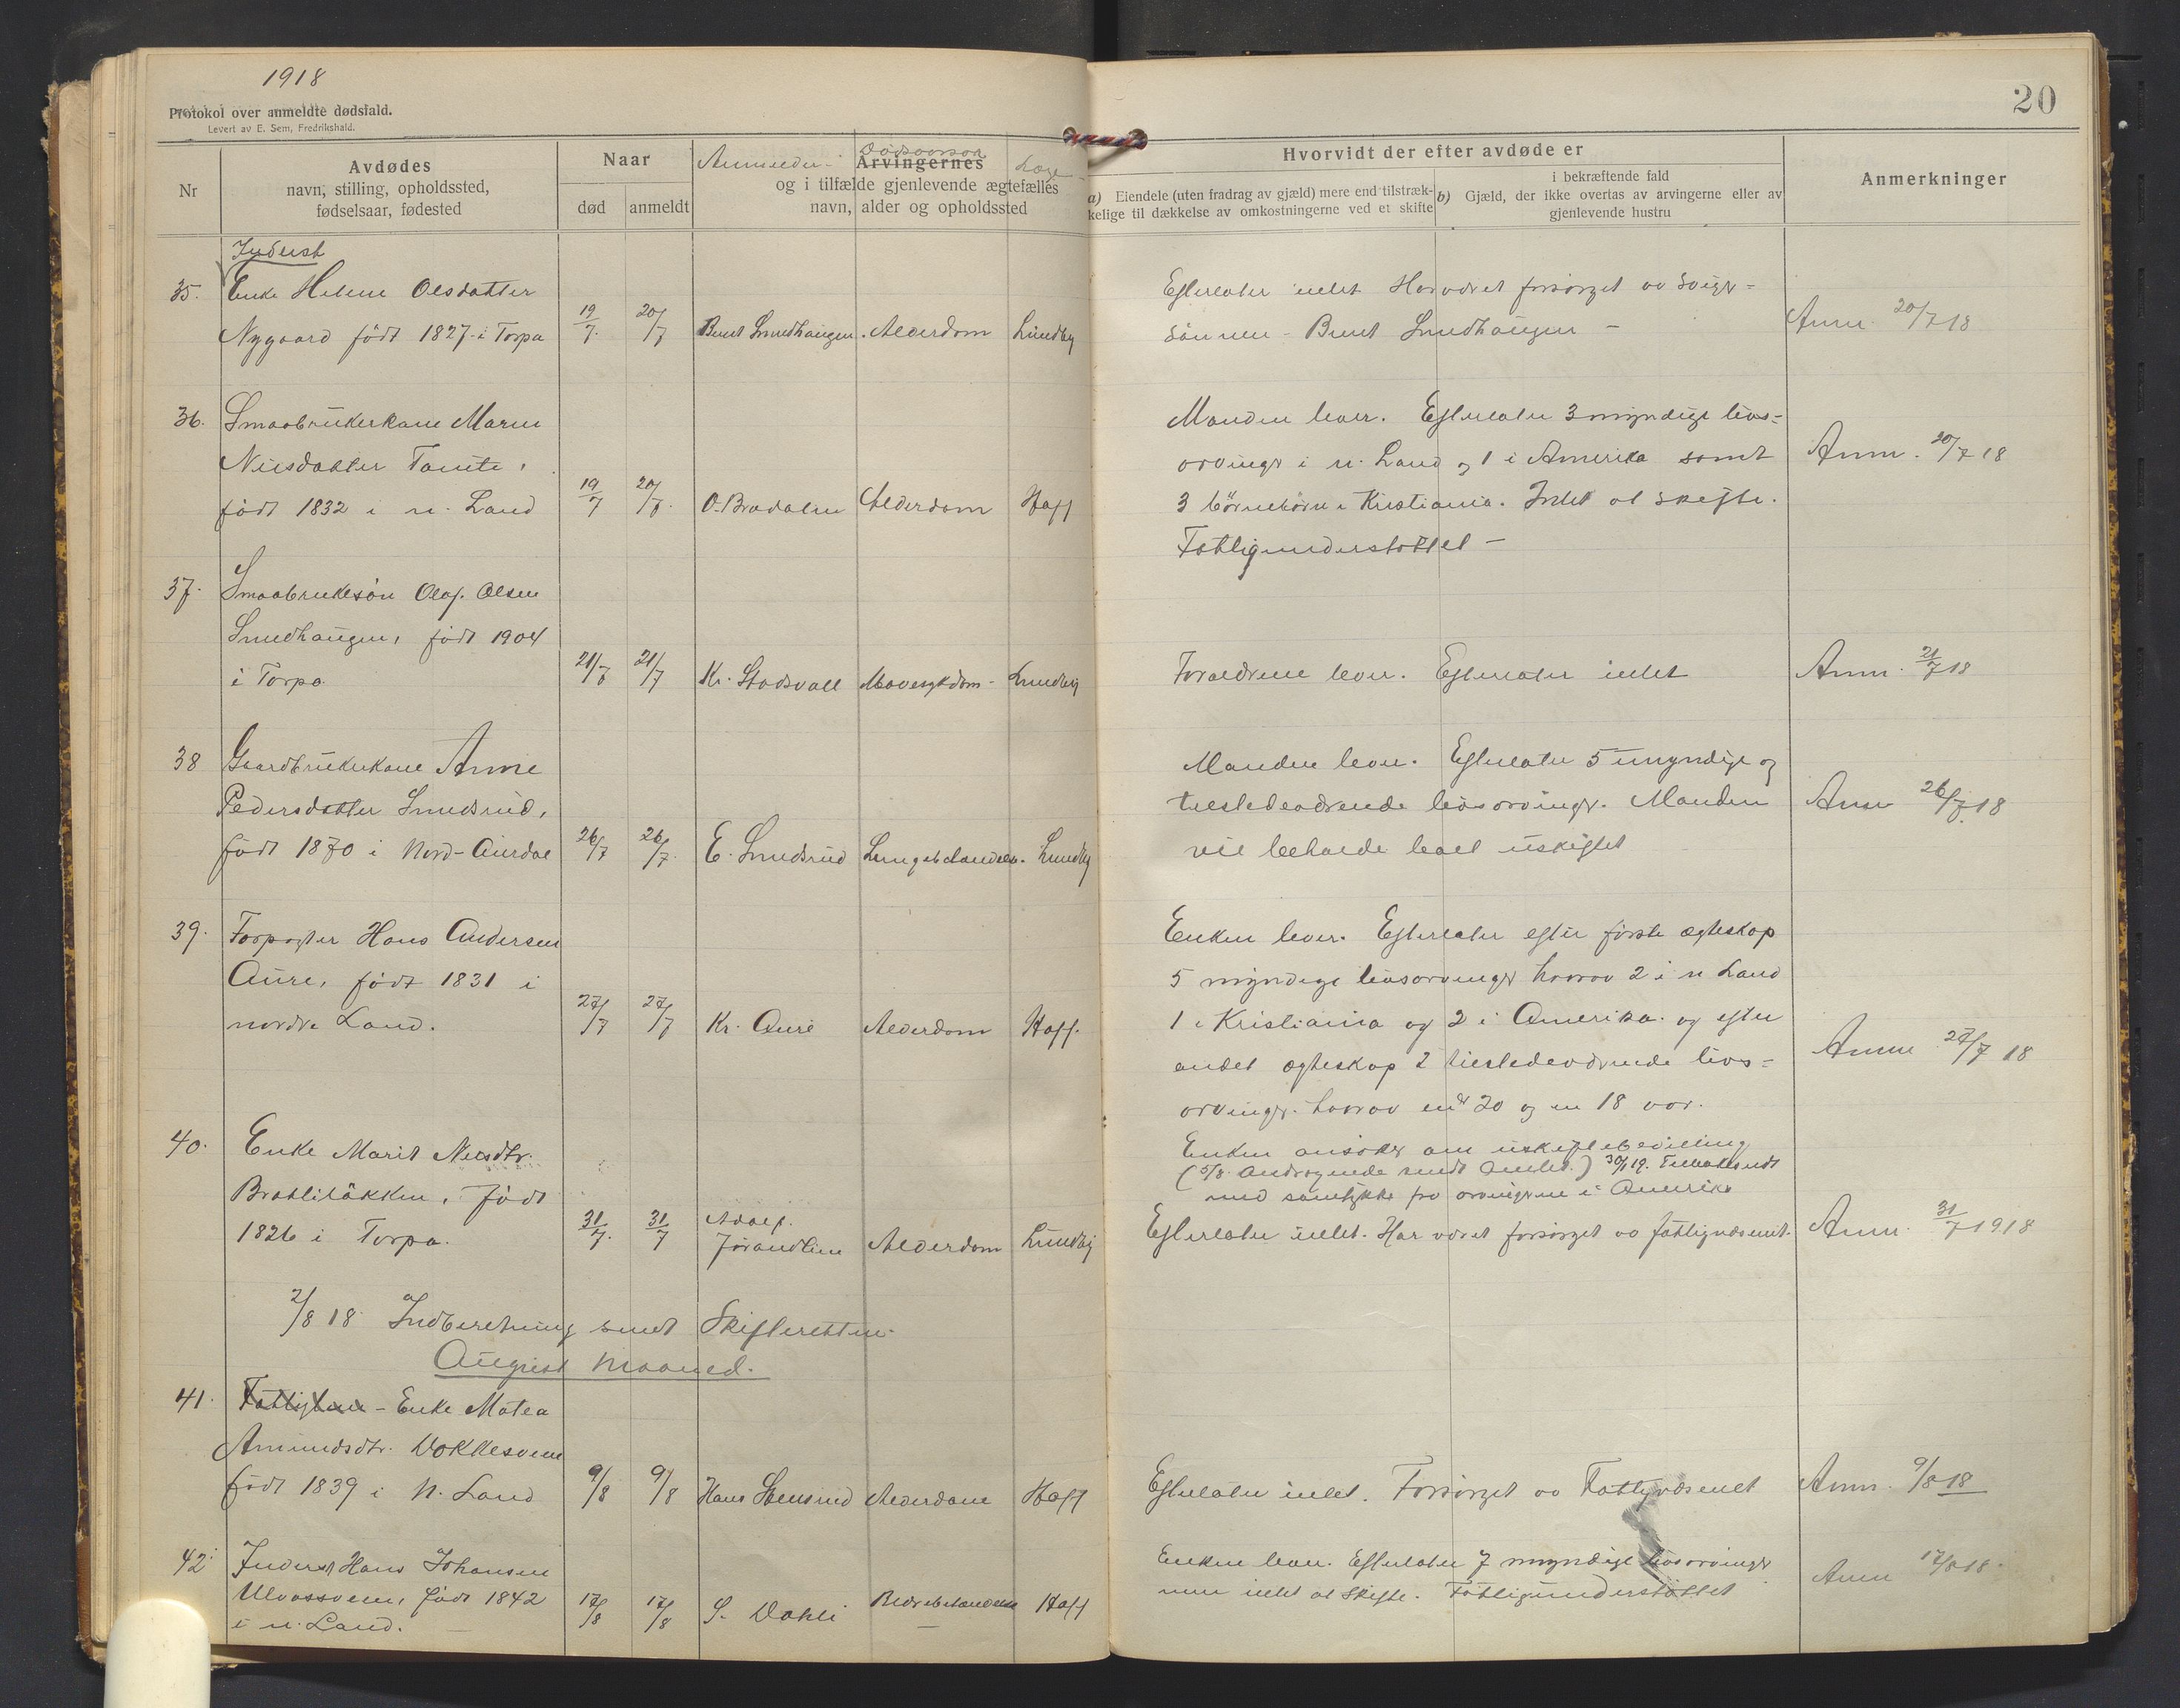 1918
Protokol over anmeldte dødsfald.
Levert av E. Sem, Fredrikshald.
20
Nr
Avdødes
navn, stilling, opholdssted,
fødselsaar, fødested
Naar
død
anmeldt
Anmelder
Dødsaarsak
Læge
Arvingernes
og i tilfælde gjenlevende ægtefælles
navn, alder og opholdssted
Hvorvidt der efter avdøde er
a) Eiendele (uten fradrag av gjæld) mere end tilstræk-
kelige til dækkelse av omkostningerne ved et skifte
i bekræftende fald
b) Gjæld, der ikke overtas av arvingerne eller av
gjenlevende hustru
Anmerkninger
Inderst
35. Enke Helene Olsdatter
Nygaard født 1827 i Torpa 19/7 20/7 Bernt Smedhaugen Alderdom Lundby
Efterlater intet Har været forsørget av Sviger-
sønnen - Bernt Smedhaugen -
Anm. 20/7 18
36. Smaabrukerkone Maren
Nilsdatter Tomte,
født 1832 i n. Land 19/7 20/7 O. Bradalen Alderdom Hoff
Manden lever. Efterlater 3 myndige livs-
arvinger i n. Land og 1 i Amerika samt
3 børnebørn i Kristiania. Intet at skifte.
Fattigunderstøttet -
Anm. 20/7 18
37. Smaabrukersøn Olaf Olsen
Smedhaugen, født 1904
i Torpa 21/7 21/7 Kr. Stadsvold Mavesykdom - Lundby
Foreldrene lever. Efterlater intet
Anm. 21/7 18
38 Gaardbrukerkone Anne
Pedersdatter Smedsrud,
født 1870 i Nord-Aurdal 26/7 26/7 E. Smedsrud Lungebetændelse. Lundby
Manden lever. Efterlater 5 umyndige og
tilstedeværende livsarvinger. Manden
vil beholde boet uskiftet
Anm 26/7 18
39. Forpagter Hans Andersen
Aure, født 1831 i
nordre Land. 27/7 27/7 Kr. Aure Alderdom Hoff.
Enken lever. Efterlater efter første ægteskap
5 myndige livsarvinger hvorav 2 i n Land
1 i Kristiania og 2 i Amerika og efter
andet ægteskap 2 tilstedeværende livs-
arvinger. hvorav en er 20 og en 18 aar.
Enken ansøker om uskiftebevilling
(5/8 Andragende sendt Amtet.) 30/1 19. Tilbakesendt
med samtykke fra arvingerne i Amerika
Anm 27/7 18
40. Enke Marit Nilsdtr.
Brattliløkken, født
1826 i Torpa. 31/7 31/7 Adolf Jørandlien Alderdom Lundby
Efterlater intet. Har været forsørget av fattigvæsenet.
Anm. 31/7 1918
2/8 18 Indberetning sendt Skifteretten.
August maaned.
41. Enke Matea
Amundsdtr. Vokkesveen
født 1839 i N. Land 9/8 9/8 Hans Alderdom Hoff
Efterlater intet. Forsørget av Fattigvæsenet
Anm. 9/8 18
42. Inderst Hans Johansen
født 1842
i n. Land. 17/8 17/8 S. Dahli Hoff
Enken lever. Efterlater 7 myndige livsarvinger
men intet at skifte. Fattigunderstøttet
Anm 17/8 18.